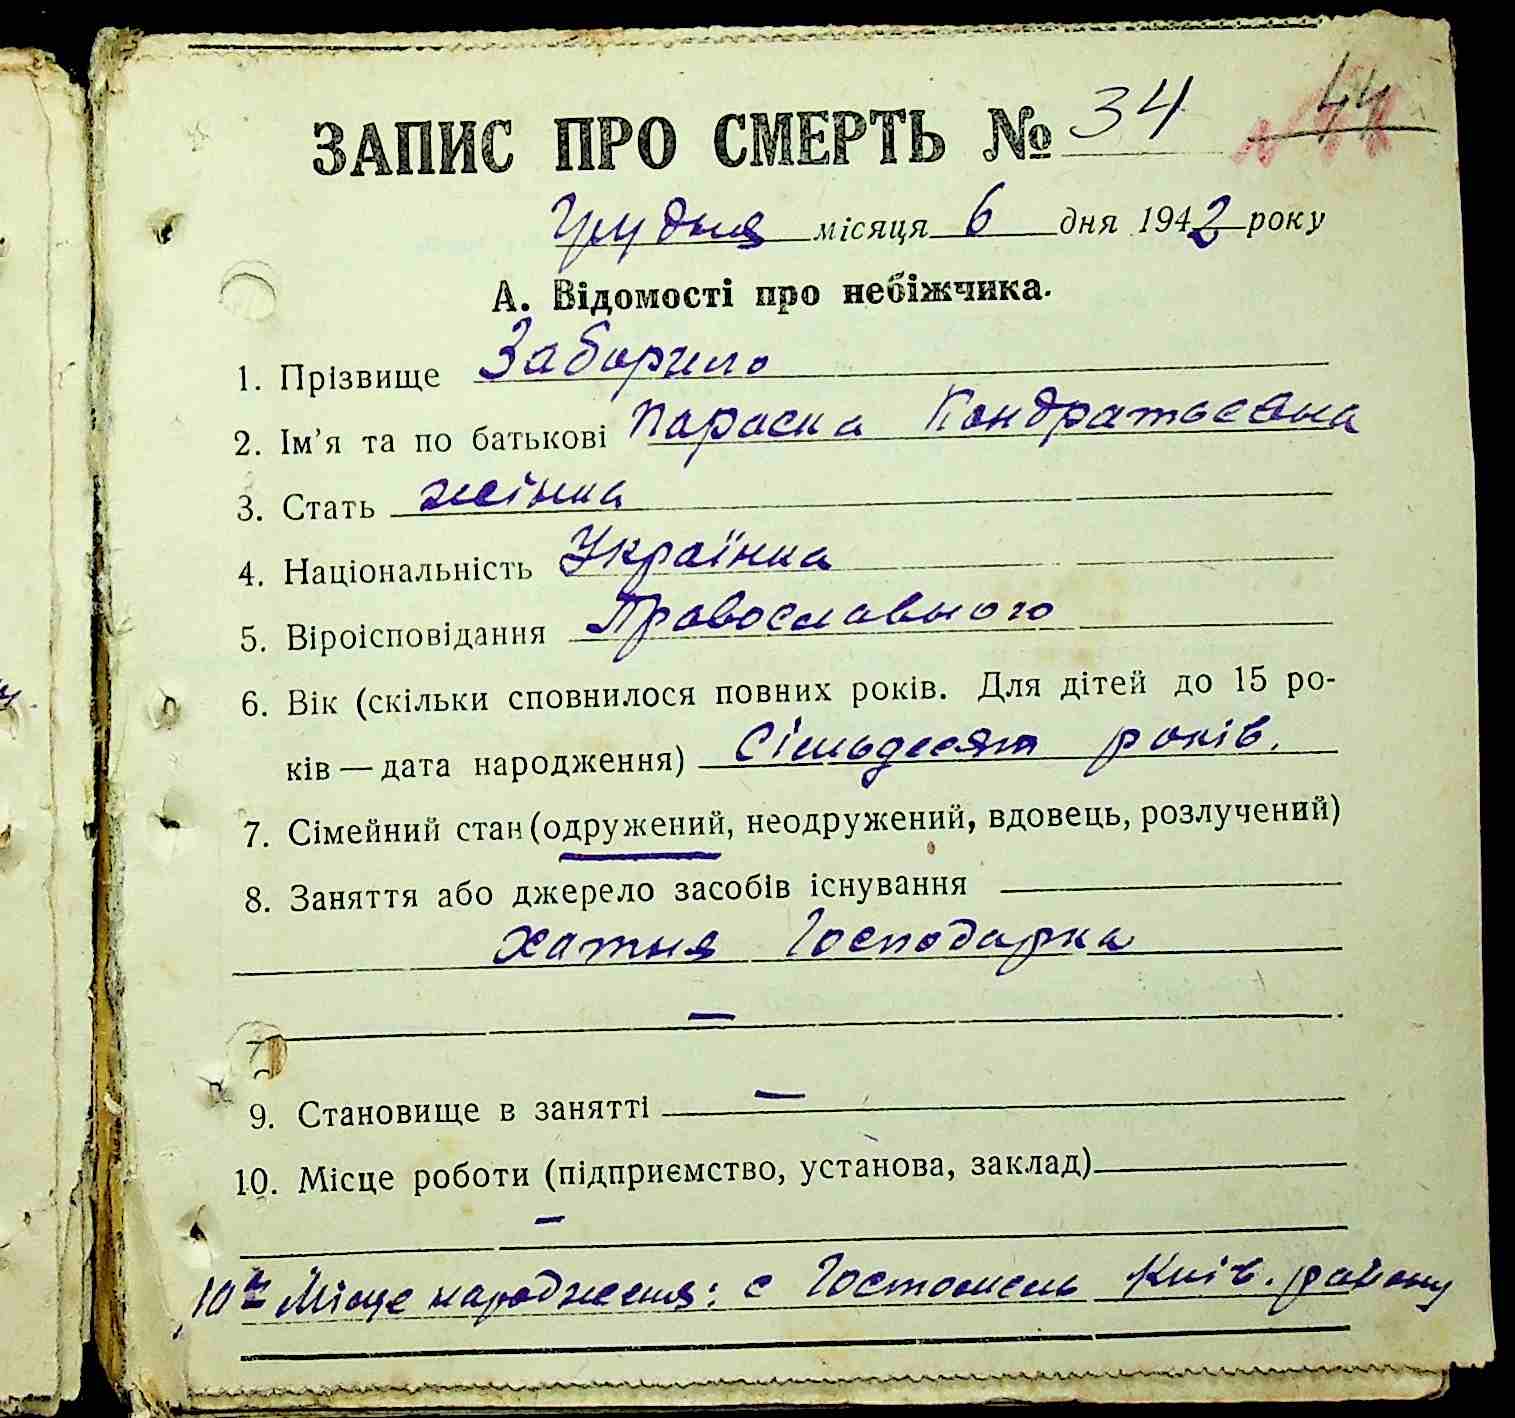 ЗАПИС ПРО СМЕРТЬ № 34 44
Грудня місяця 6 дня 1942 року
А. Відомості про небіжчика.
1. Прізвище Заборило
2. Ім'я та по батькові Параска Кондратьєвна
3. Стать жінка
4. Національність Українка
5. Віроісповідання Православного
6. Вік (скільки сповнилося повних років. Для дітей до 15 ро-
ків — дата народження) Сімьдесят років.
7. Сімейний стан (одружений, неодружений, вдовець, розлучений)
8. Заняття або джерело засобів існування
хатня Господарка
—
9. Становище в занятті —
10. Місце роботи (підприємство, установа, заклад)
—
10а Місце народження: с Гостомель Київ. району